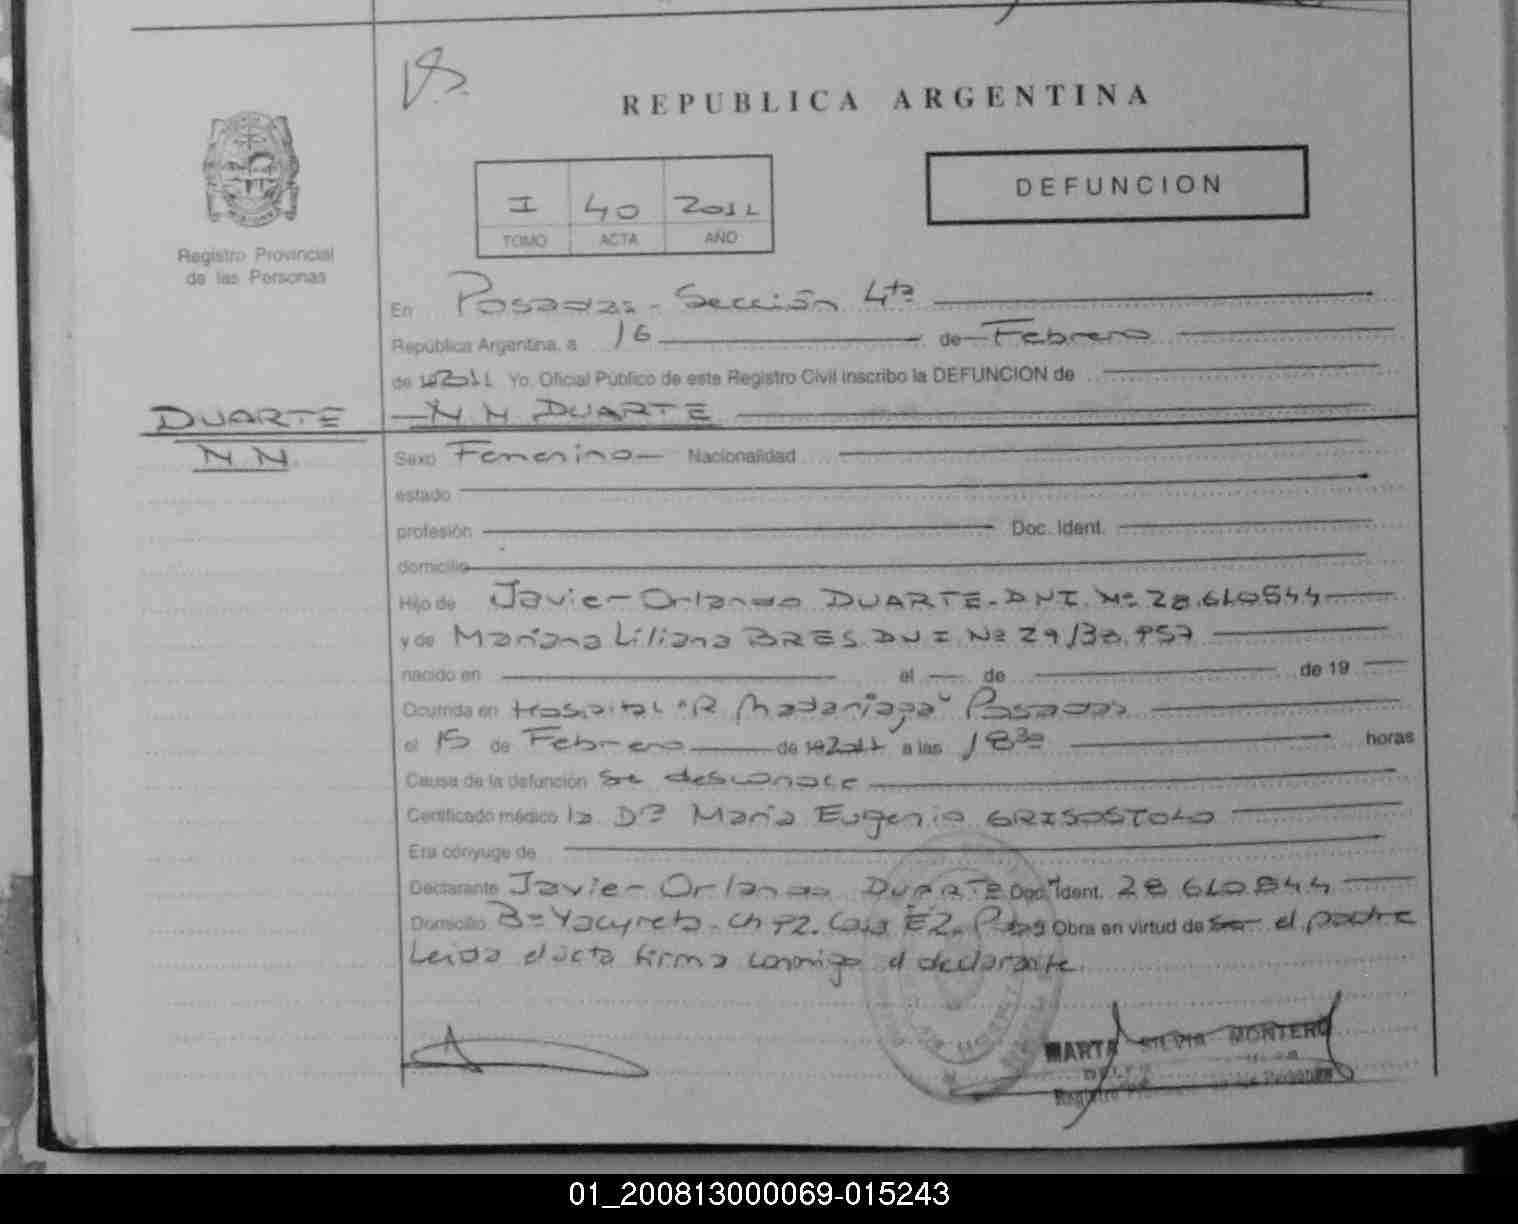 REPUBLICA ARGENTINA
DEFUNCION
I 40 2011
TOMO ACTA AÑO
Registro Provincial
de las Personas
En Posadas - Sección 4ta
República Argentina, a 16 de Febrero
de 2011 Yo, Oficial Público de este Registro Civil inscribo la DEFUNCION de
DUARTE
N N DUARTE
N N.
Sexo Femenino Nacionalidad
estado
profesión Doc. Ident.
domicilio
Hijo de Javier Orlando DUARTE. DNI. Nº 28.610544
y de Mariana Liliana BRES. DNI. Nº 29138.957
nacido en el de de 19
Ocurrida en Hospital "R Madariaga" Posadas
el 15 de Febrero de 2011 a las 18 30 horas
Causa de la defunción Se desconoce
Certificado médico la Dra Maria Eugenia GRISOSTOLO
Era cónyuge de
Declarante Javier Orlando DUARTE Doc. Ident. 28 610544
Domicilio Bº Yacyreta. Ch 92. Casa E2. Pdas Obra en virtud de Ser el padre
Leida el acta firma conmigo el declarante.
MARTA SILVIA MONTERO
01_200813000069-015243